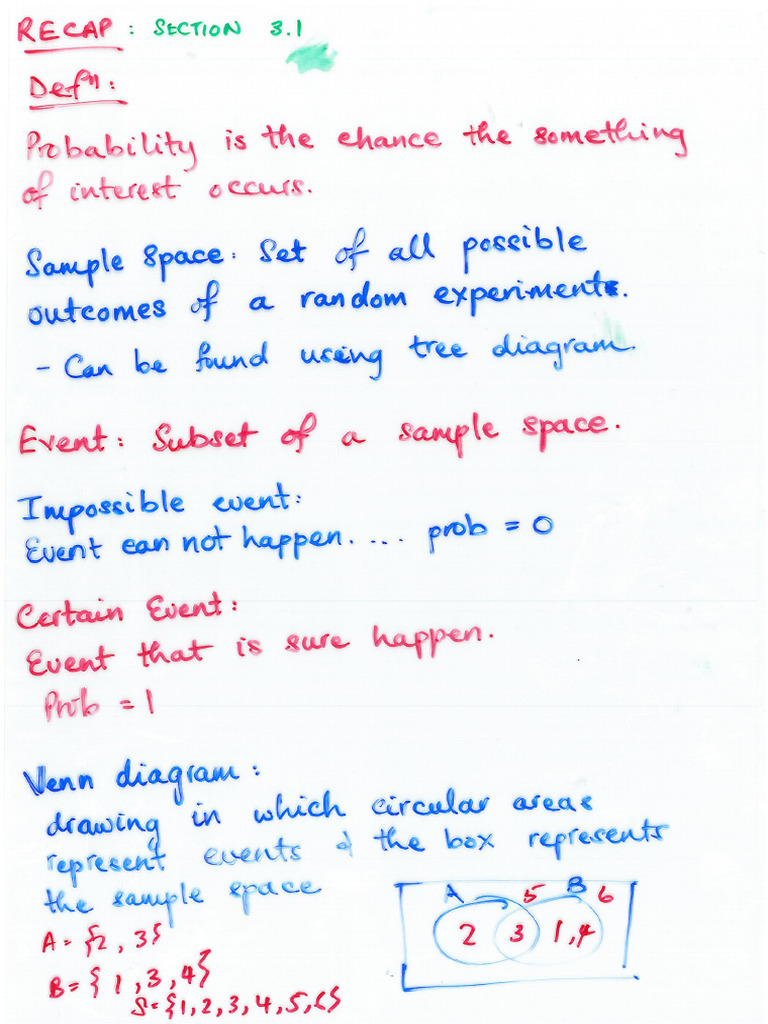 RECAP : SECTION 3.1
Defⁿ:
Probability is the chance the something
of interest occurs.
Sample space: Set of all possible
outcomes of a random experiments.
- Can be found using tree diagram.
Event: Subset of a sample space.
Impossible event:
Event can not happen. ... prob = 0
Certain Event:
Event that is sure happen.
Prob = 1
Venn diagram:
drawing in which circular areas
represent events & the box represents
the sample space
A = {2, 3}
B = {1, 3, 4}
S = {1, 2, 3, 4, 5, 6}
A 5 B 6
2 3 1,4